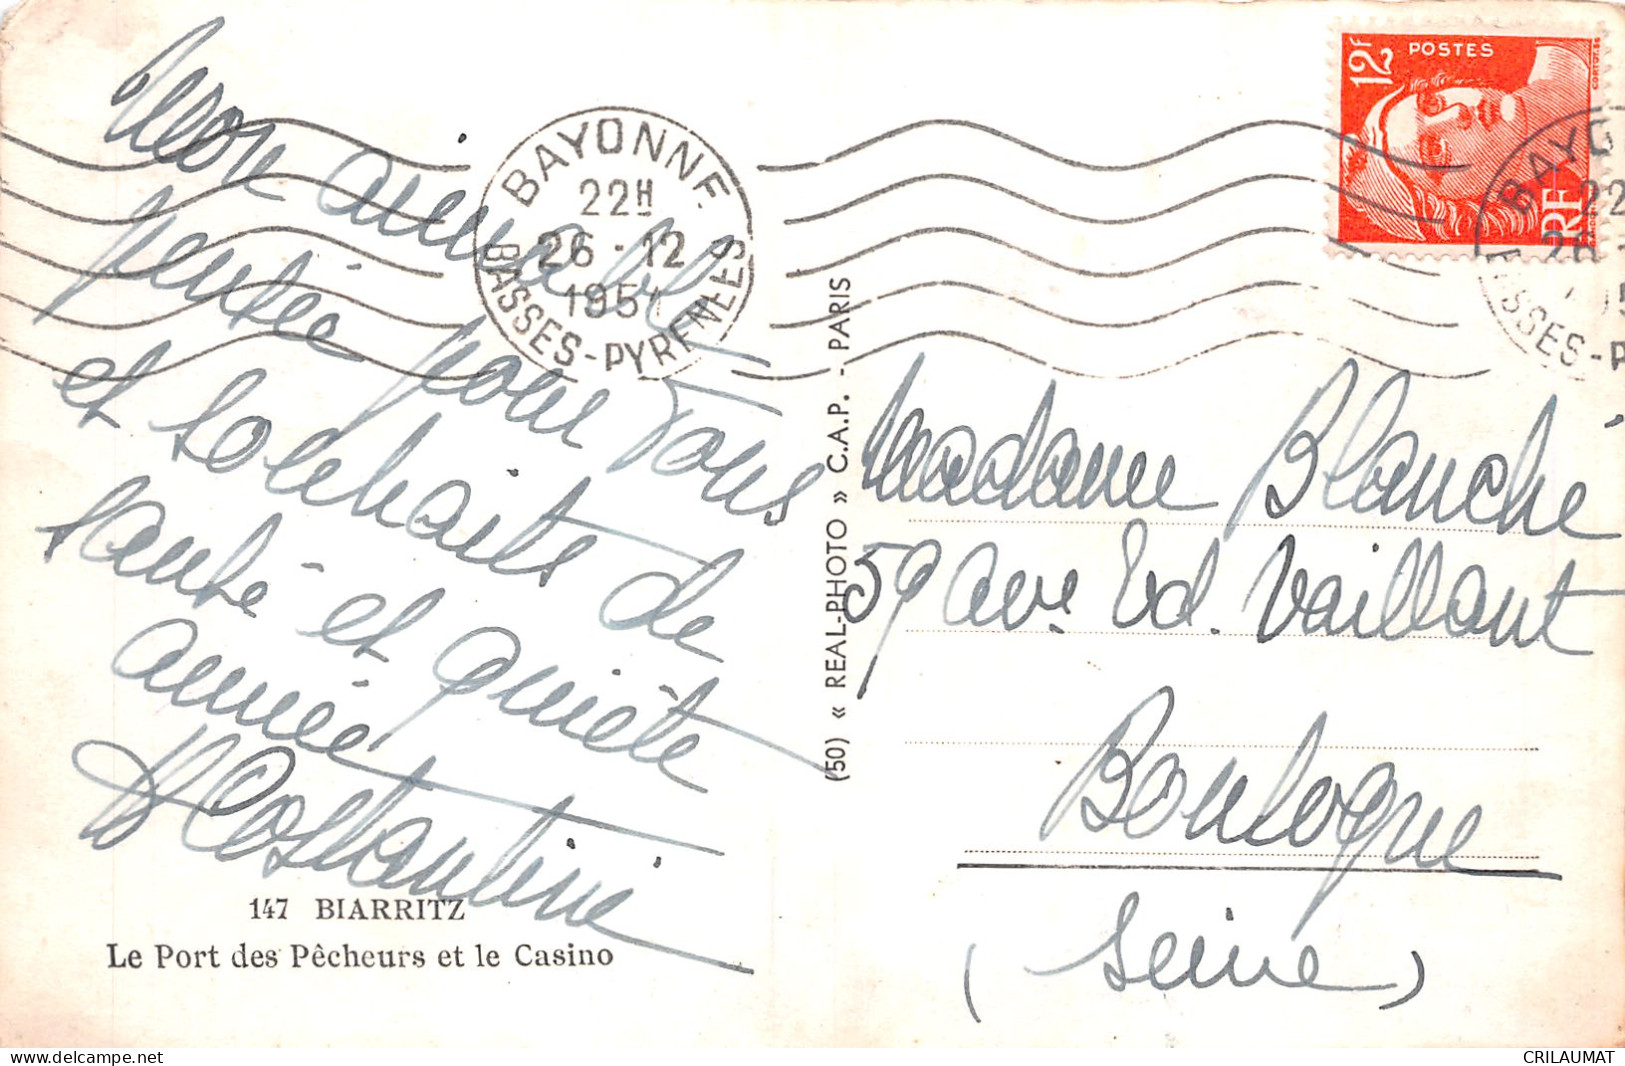 Mon aimable
pensée pour Vous
et souhaits de
santé et quiète
année
Costantini
147 BIARRITZ
Le Port des Pêcheurs et le Casino
BAYONNE
22H
26-12
1951
BASSES-PYRENEES
(50) « REAL-PHOTO » C.A.P. - PARIS
12F
POSTES
RF
BAYO
22
26
BASSES-P
Madame Blanché
59 ave Ed. Vaillant
Boulogne
(Seine)
delcampe.net
CRILAUMAT